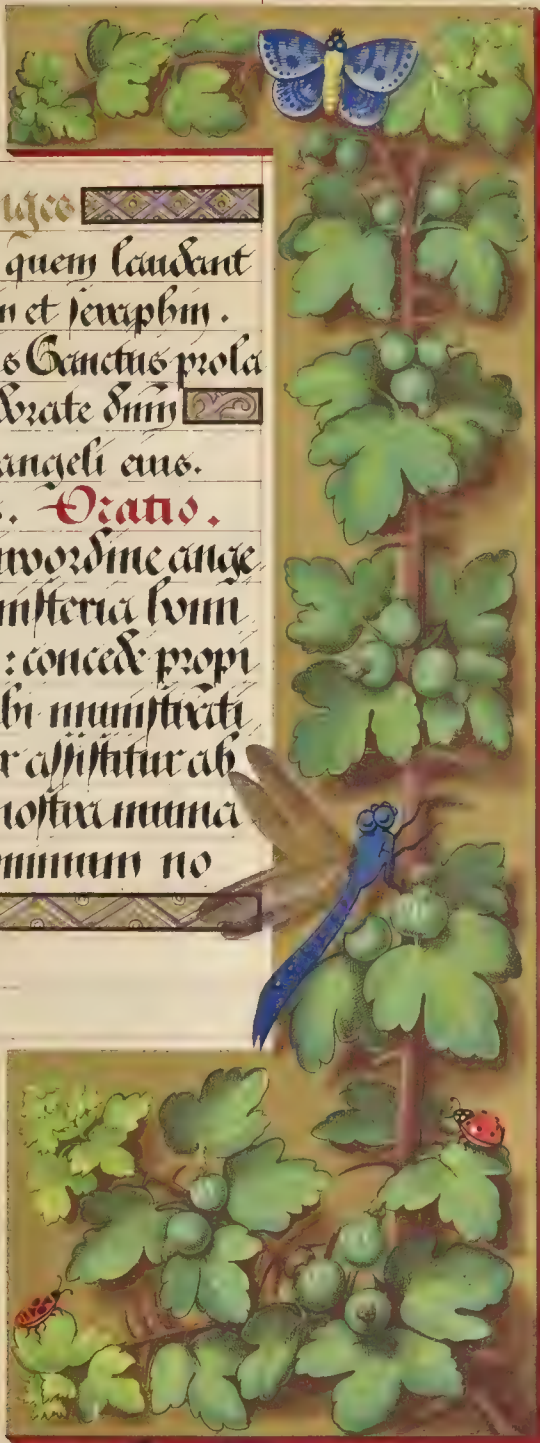 quem laudant
et seraphin.
s Sanctus prola
dorate dnm
angeli eius.
s. Oratio.
ordine ange
misteria homi
: concede propi
bi ministrati
r assistitur ab
nostra muniа
no